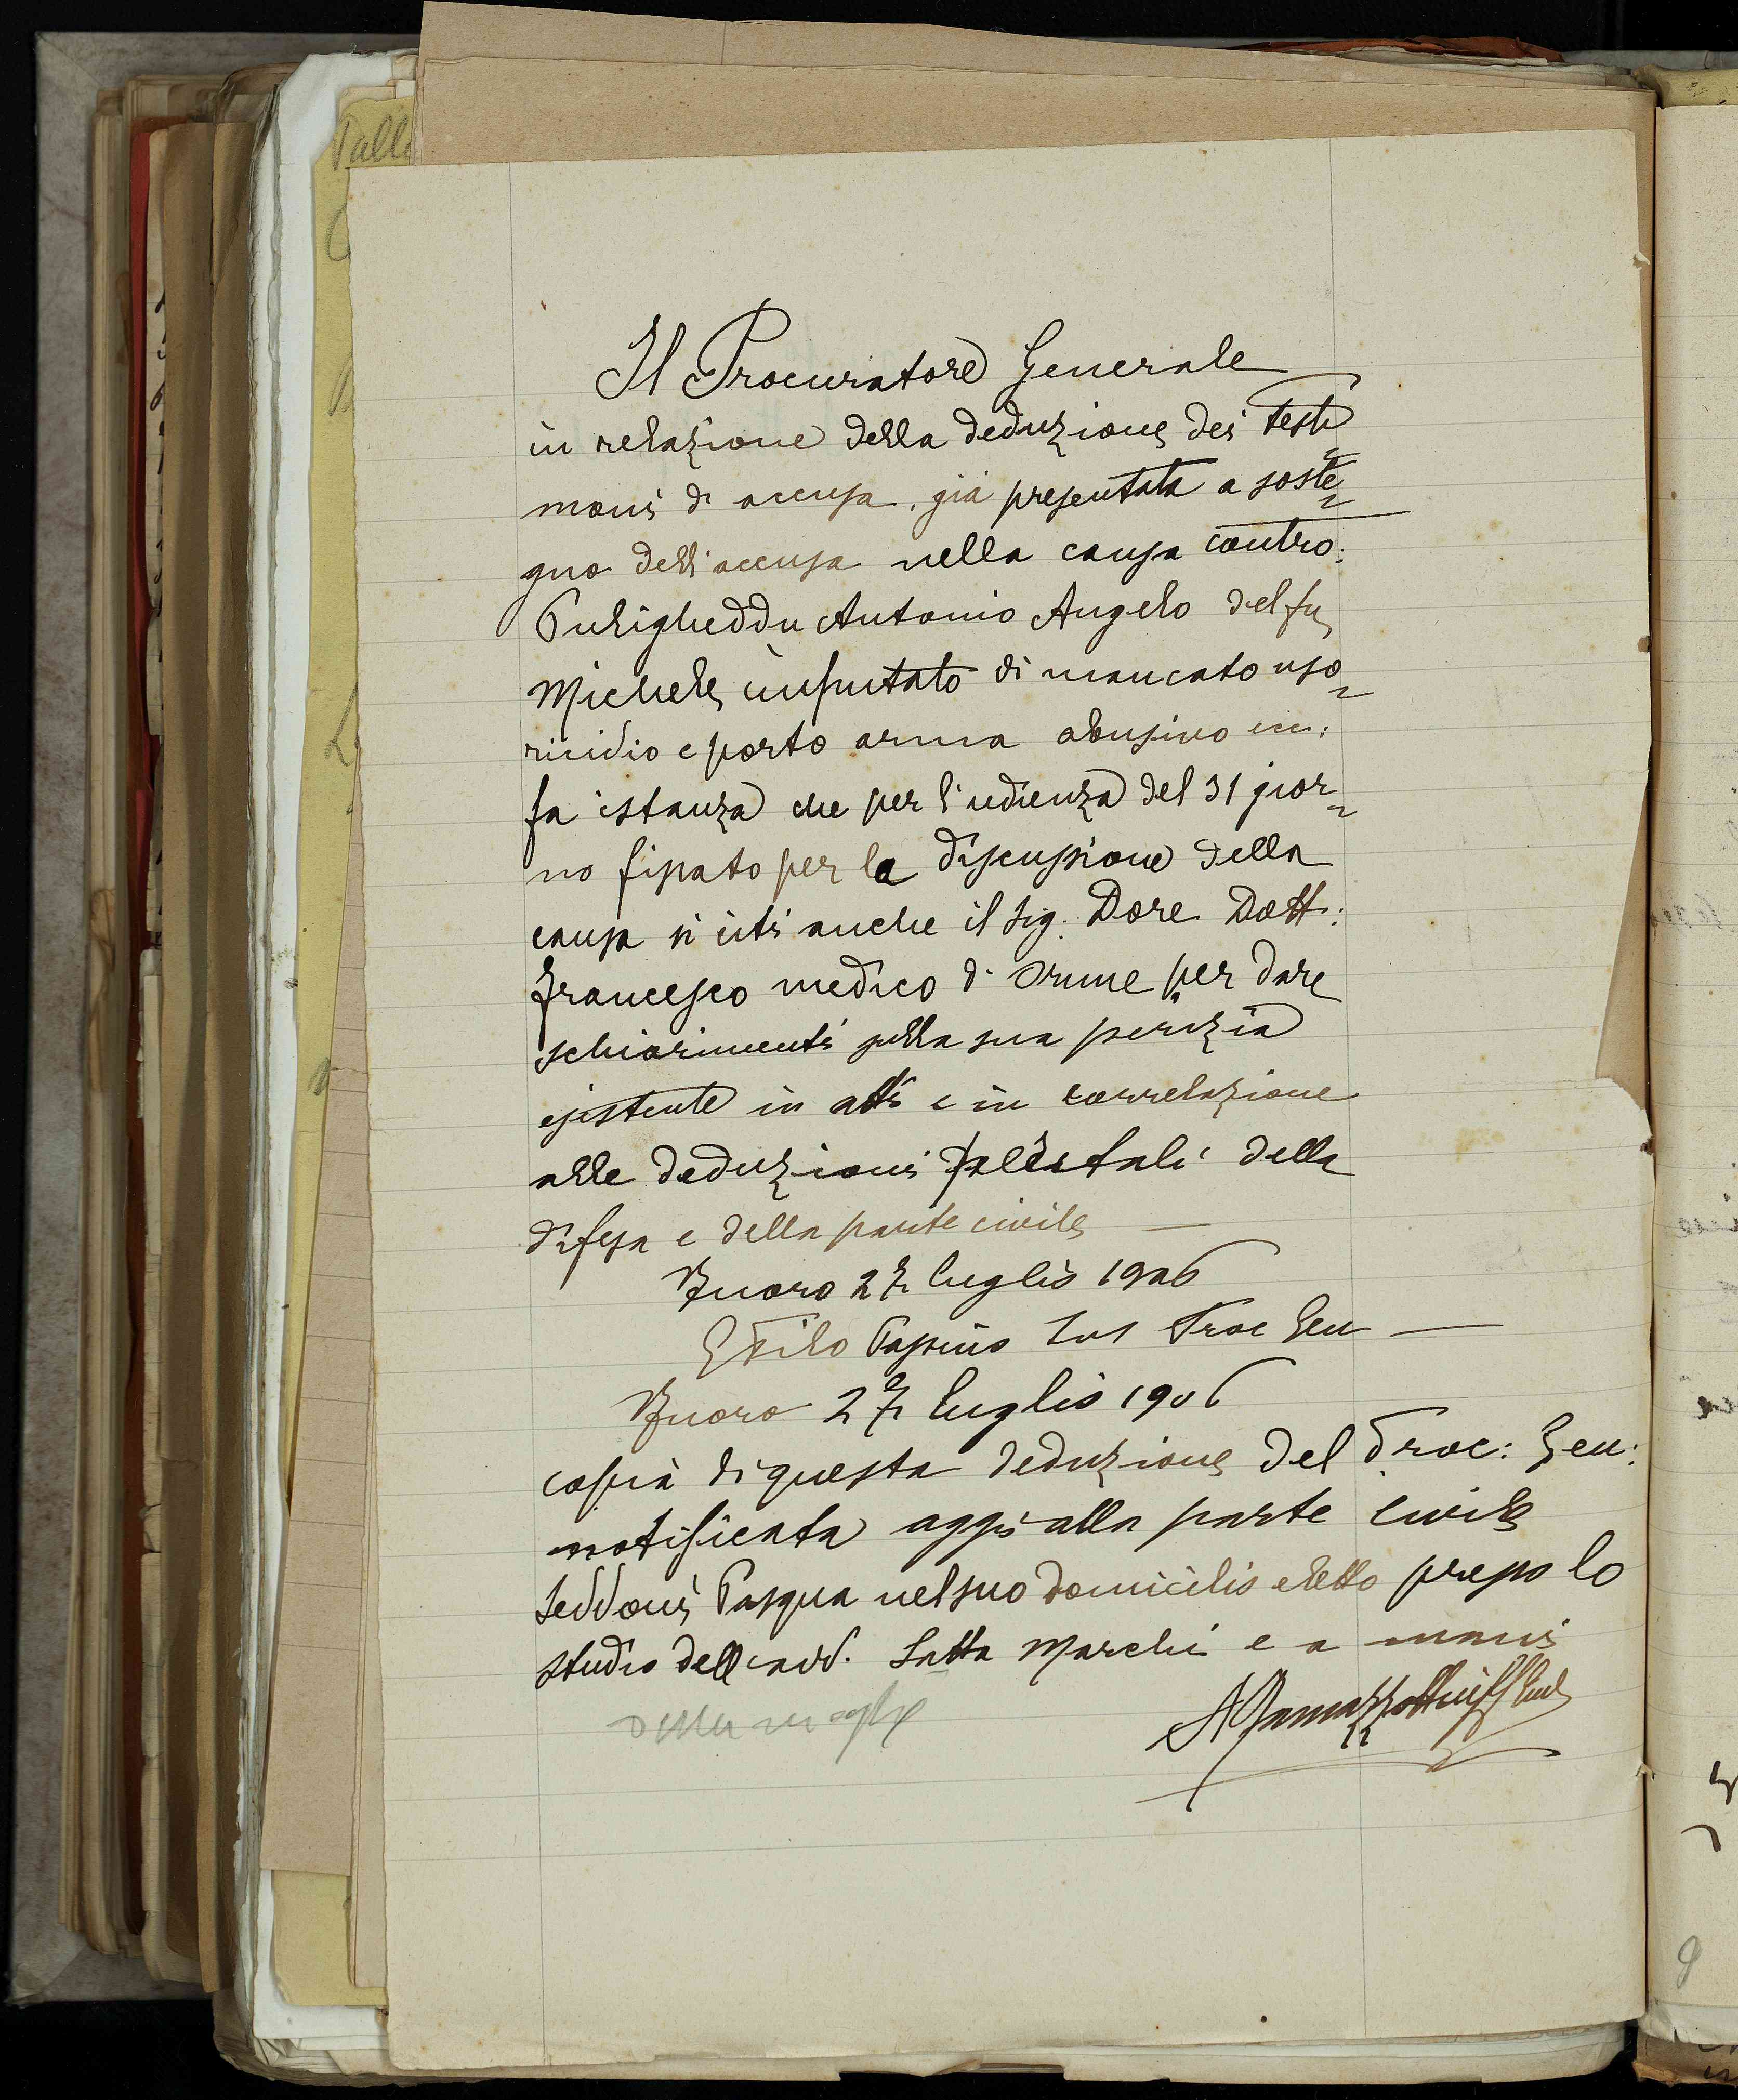 Il Procuratore Generale
in relazione della deduzione dei testi
moni di accusa, già presentata a soste
gno dell'accusa nella causa contro:
Puligheddu Antonio Angelo del fu
Michele imputato di mancato uso
ricidio e porto arma abusivo ecc:
fa istanza che per l'udienza del 31 gior
no fissato per la discussione della
causa si citi anche il Sig. Dore Dott:
Francesco medico di Orune per dare
schiarimenti sulla sua perizia
esistente in atti e in correlazione
alle deduzioni della
difesa e della parte civile —
Nuoro 27 luglio 1906
Papino Sos Proc Gen —
Nuoro 27 luglio 1906
copia di questa deduzione del Proc: Gen:
notificata oggi alla parte civile
Seddone Pasqua nel suo domicilio eletto presso lo
studio dell'avv. Satta Marchi e a mani
della moglie
Palli